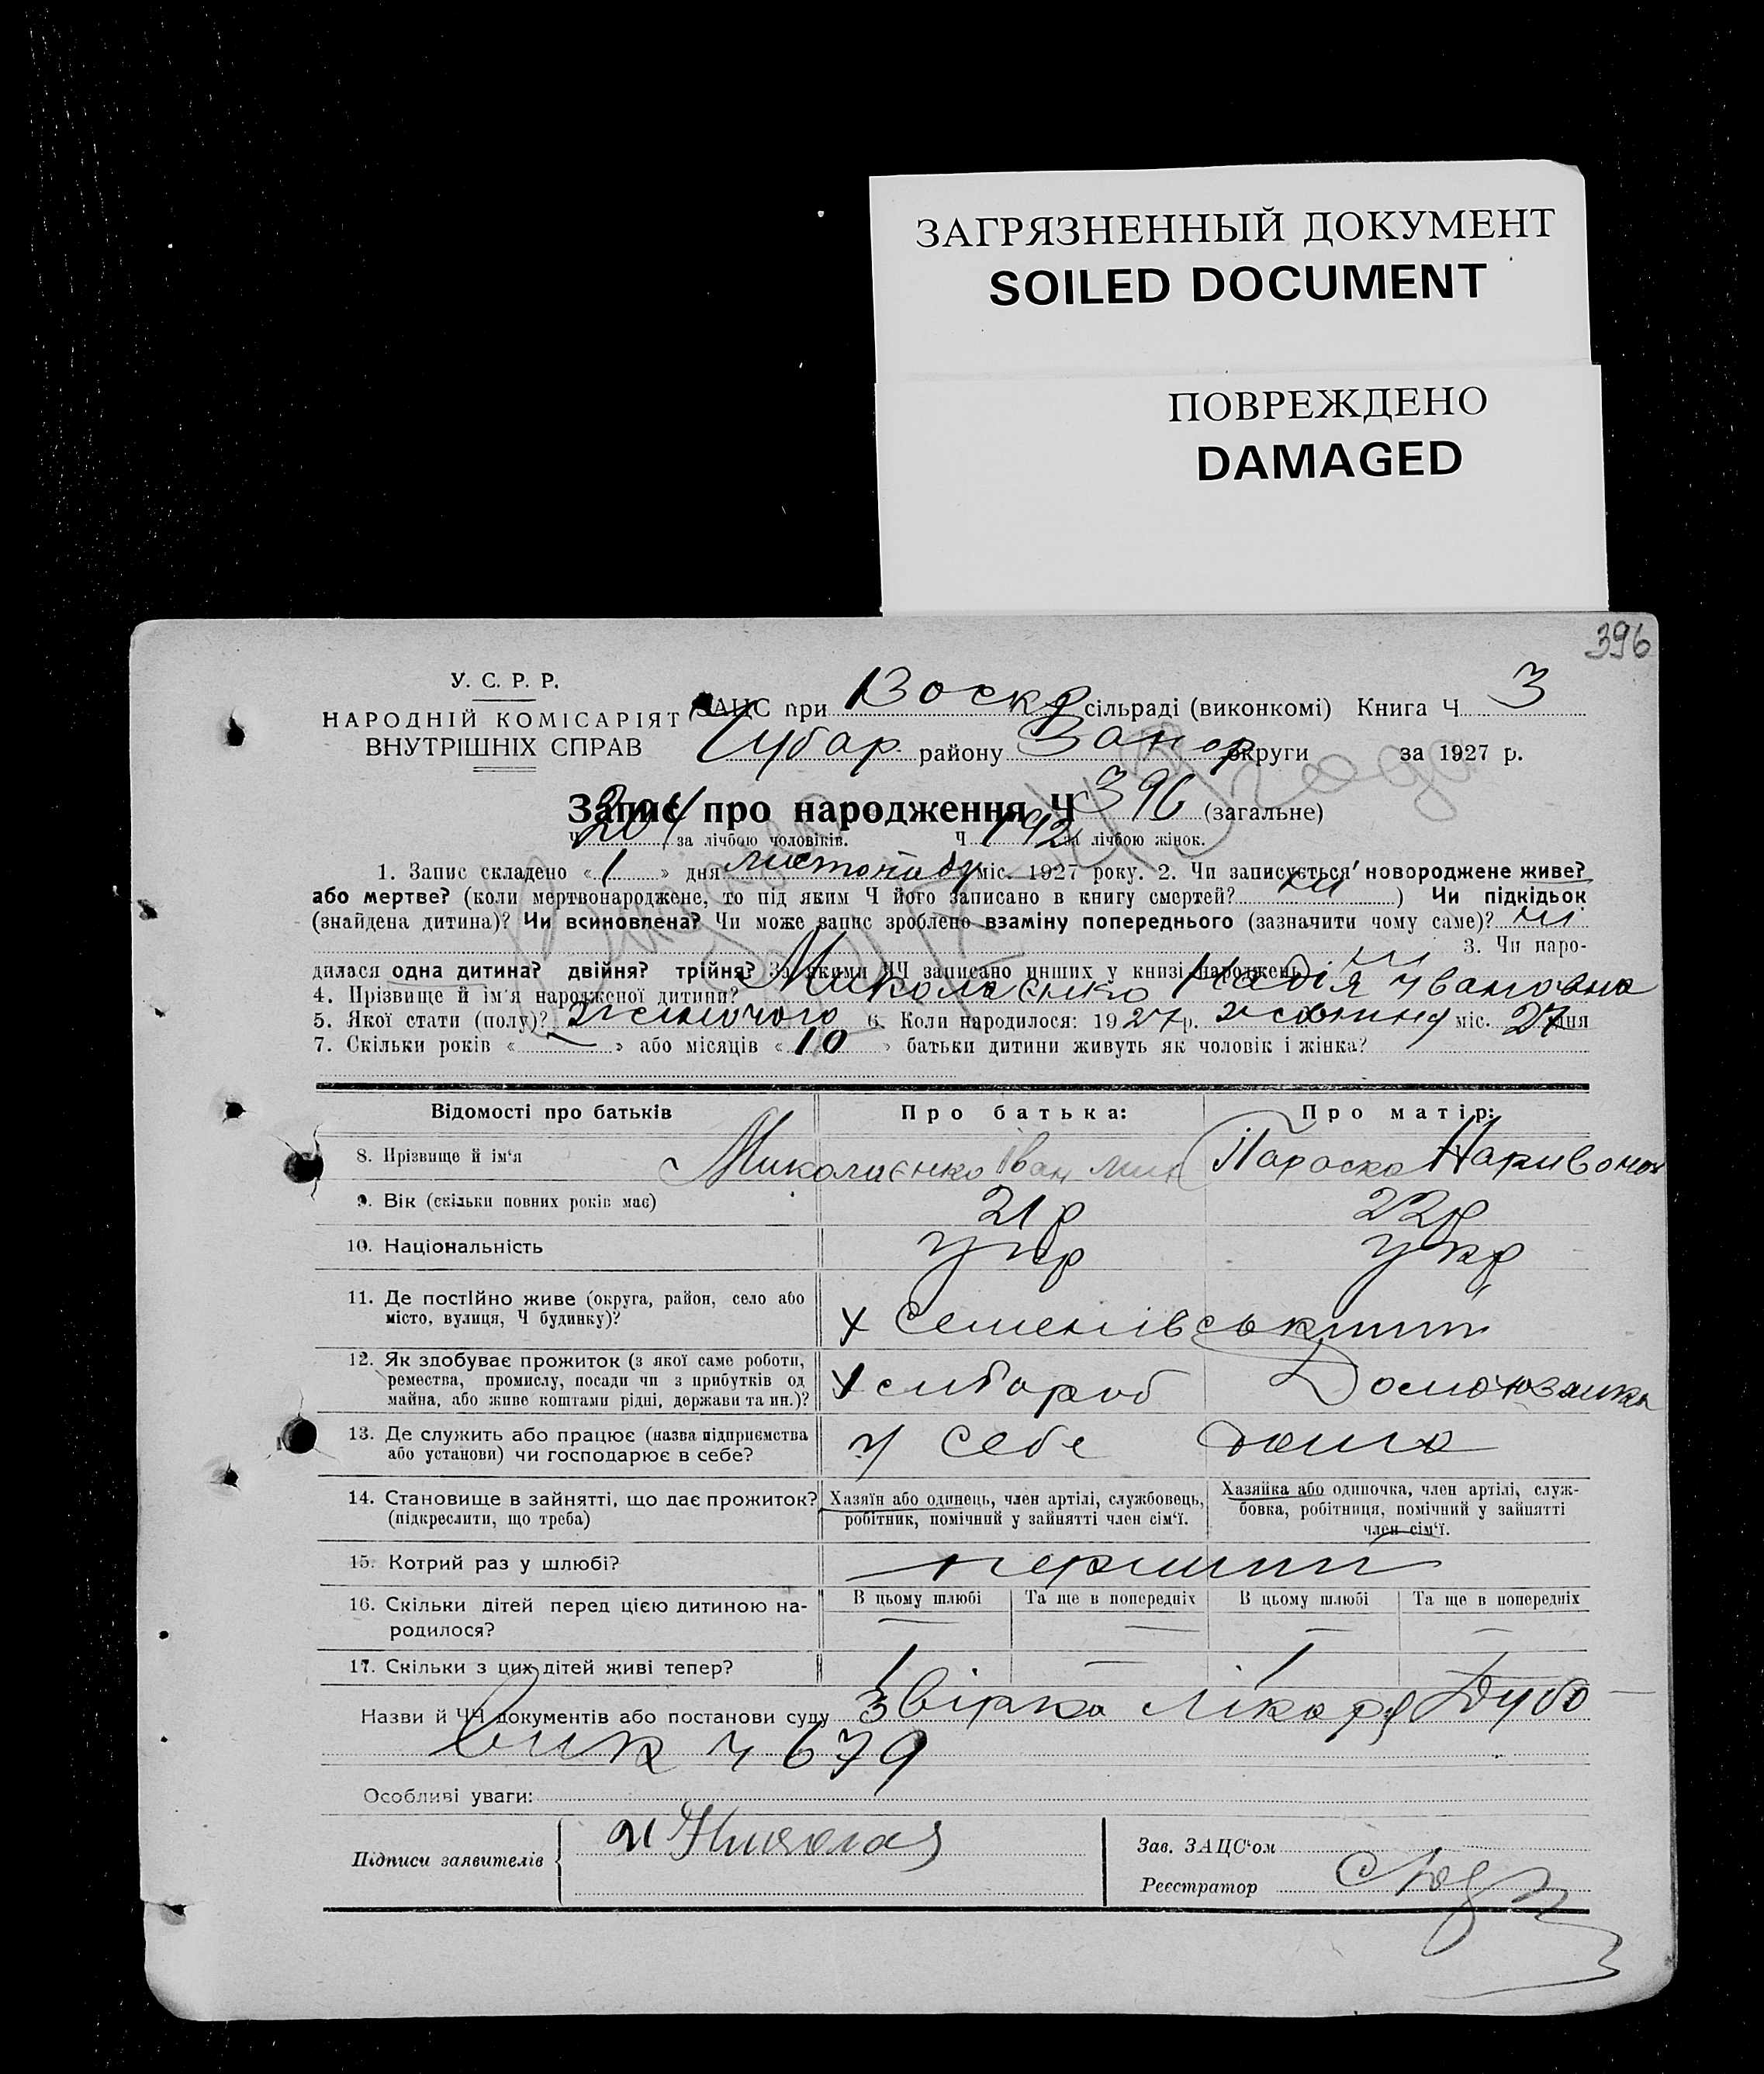 ЗАГРЯЗНЕННЫЙ ДОКУМЕНТ
SOILED DOCUMENT
ПОВРЕЖДЕНО
DAMAGED
396
У. С. Р. Р.
НАРОДНІЙ КОМІСАРІЯТ
ВНУТРІШНІХ СПРАВ
ЗАЦС при Воскр сільраді (виконкомі) Книга Ч 3
Чубар. району Запор округи за 1927 р.
Запис про народження Ч 396 (загальне)
Ч 204 за лічбою чоловіків. Ч 192 за лічбою жінок.
1. Запис складено « 1 » дня листопаду міс. 1927 року. 2. Чи записується новороджене живе?
або мертве? (коли мертвонароджене, то під яким Ч його записано в книгу смертей? ні ) Чи підкідьок
(знайдена дитина)? Чи всиновлена? Чи може запис зроблено взаміну попереднього (зазначити чому саме)? ні
3. Чи наро-
дилася одна дитина? двійня? трійня? За якими ЧЧ записано инших у книзі народжень ні
4. Прізвище й ім'я народженої дитини? Миколаєнко Надія Ивановна
5. Якої стати (полу)? жіночого 6. Коли народилося: 1927 р. жовтню міс. 27 дня
7. Скільки років « — » або місяців « 10 » батьки дитини живуть як чоловік і жінка?
Відомості про батьків Про батька: Про матір:
8. Прізвище й ім'я Миколаєнко Іван Мик Параска Наривонон
9. Вік (скільки повних років має) 21 р 22 р
10. Національність укр укр
11. Де постійно живе (округа, район, село або
місто, вулиця, Ч будинку)? х Семенівський
12. Як здобуває прожиток (з якої саме роботи,
ремества, промислу, посади чи з прибутків од
майна, або живе коштами рідні, держави та ин.)? хлібороб Домохозяйка
13. Де служить або працює (назва підприємства
або установи) чи господарює в себе? у себе дома
14. Становище в зайнятті, що дає прожиток?
(підкреслити, що треба)
Хазяїн або одинець, член артілі, службовець,
робітник, помічний у зайнятті член сім'ї.
Хазяйка або одиночка, член артілі, служ-
бовка, робітниця, помічний у зайнятті
член сім'ї.
15. Котрий раз у шлюбі? перший
16. Скільки дітей перед цією дитиною на-
родилося?
В цьому шлюбі Та ще в попередніх В цьому шлюбі Та ще в попередніх
— — — —
17. Скільки з цих дітей живі тепер? 1 — 1 —
Назви й ЧЧ документів або постанови суду Звірка лікаря Дубо
вик ч 679
Особливі уваги:
Підписи заявителів
Зав. ЗАЦС'ом
Реєстратор